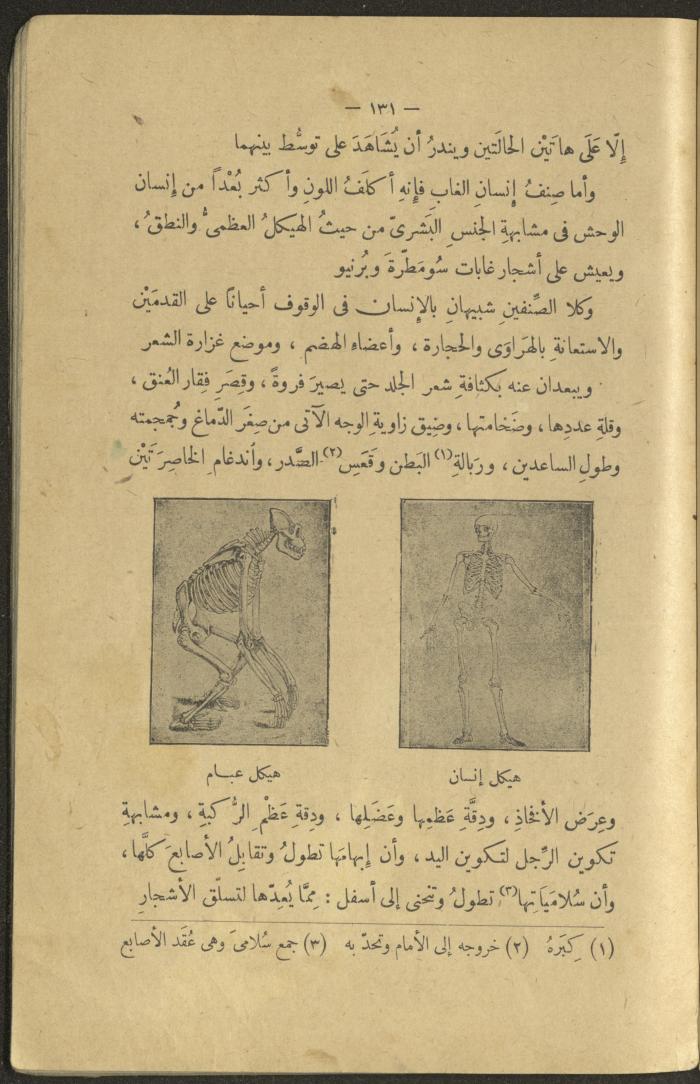 — ١٣١ —
إِلّا عَلَى هاتَيْن الحالَتين ويندرُ أن يُشَاهَدَ على توسُّط بينهما
وأما صِنفُ إِنسانِ الغابِ فإِنهِ أكلَفُ اللونِ وأكثر بُعْداً من إِنسان
الوحش فى مشابهةِ الجنسِ البَشرىّ من حيثُ الهيكلُ العظمىُّ والنطقُ ،
ويعيش على أشجار غابات سُومَطّرةَ وبُرنيو
وكلا الصِّنفينِ شبيهانِ بالإِنسان فى الوقوف أحيانًا على القدمَيْن
والاستعانةِ بالهَراوَى والحجارة ، وأعضاءِ الهضم ، وموضع غزارة الشعر
ويبعدان عنه بكثافةِ شعر الجلد حتى يصيرَ فروةً ، وقِصَرِ فِقار العُنق ،
وقلةِ عددِها ، وضَخامتها ، وضِيق زاويةِ الوجه الآتى من صِغَر الدّماغ وجُمجمته
وطولِ الساعدين ، ورَبالةِ (١) البَطن وقَعَسِ (٢) الصَّدر ، وأندغام الخاصِرَتَيْن
هيكل إنسان
هيكل عبام
وعِرَض الأفخاذِ ، ودِقَّةِ عَظمِها وعَضَلِها ، ودِقةِ عَظْمِ الرُّكبةِ ، ومشابهةِ
تكوين الرِّجل لتكوين اليد ، وأن إِبهامَها تطولُ وتقابِلُ الأصابعَ كلَّها ،
وأن سُلامَيَاتِها (٣) تطولُ وتنحنى إلى أسفل : مِمَّا يُعِدّها لتسلّق الأشجارِ
(١) كِبَرهُ (٢) خروجه إلى الأمام وتحدّبه (٣) جمع سُلامىَ وهى عُقَد الأصابع